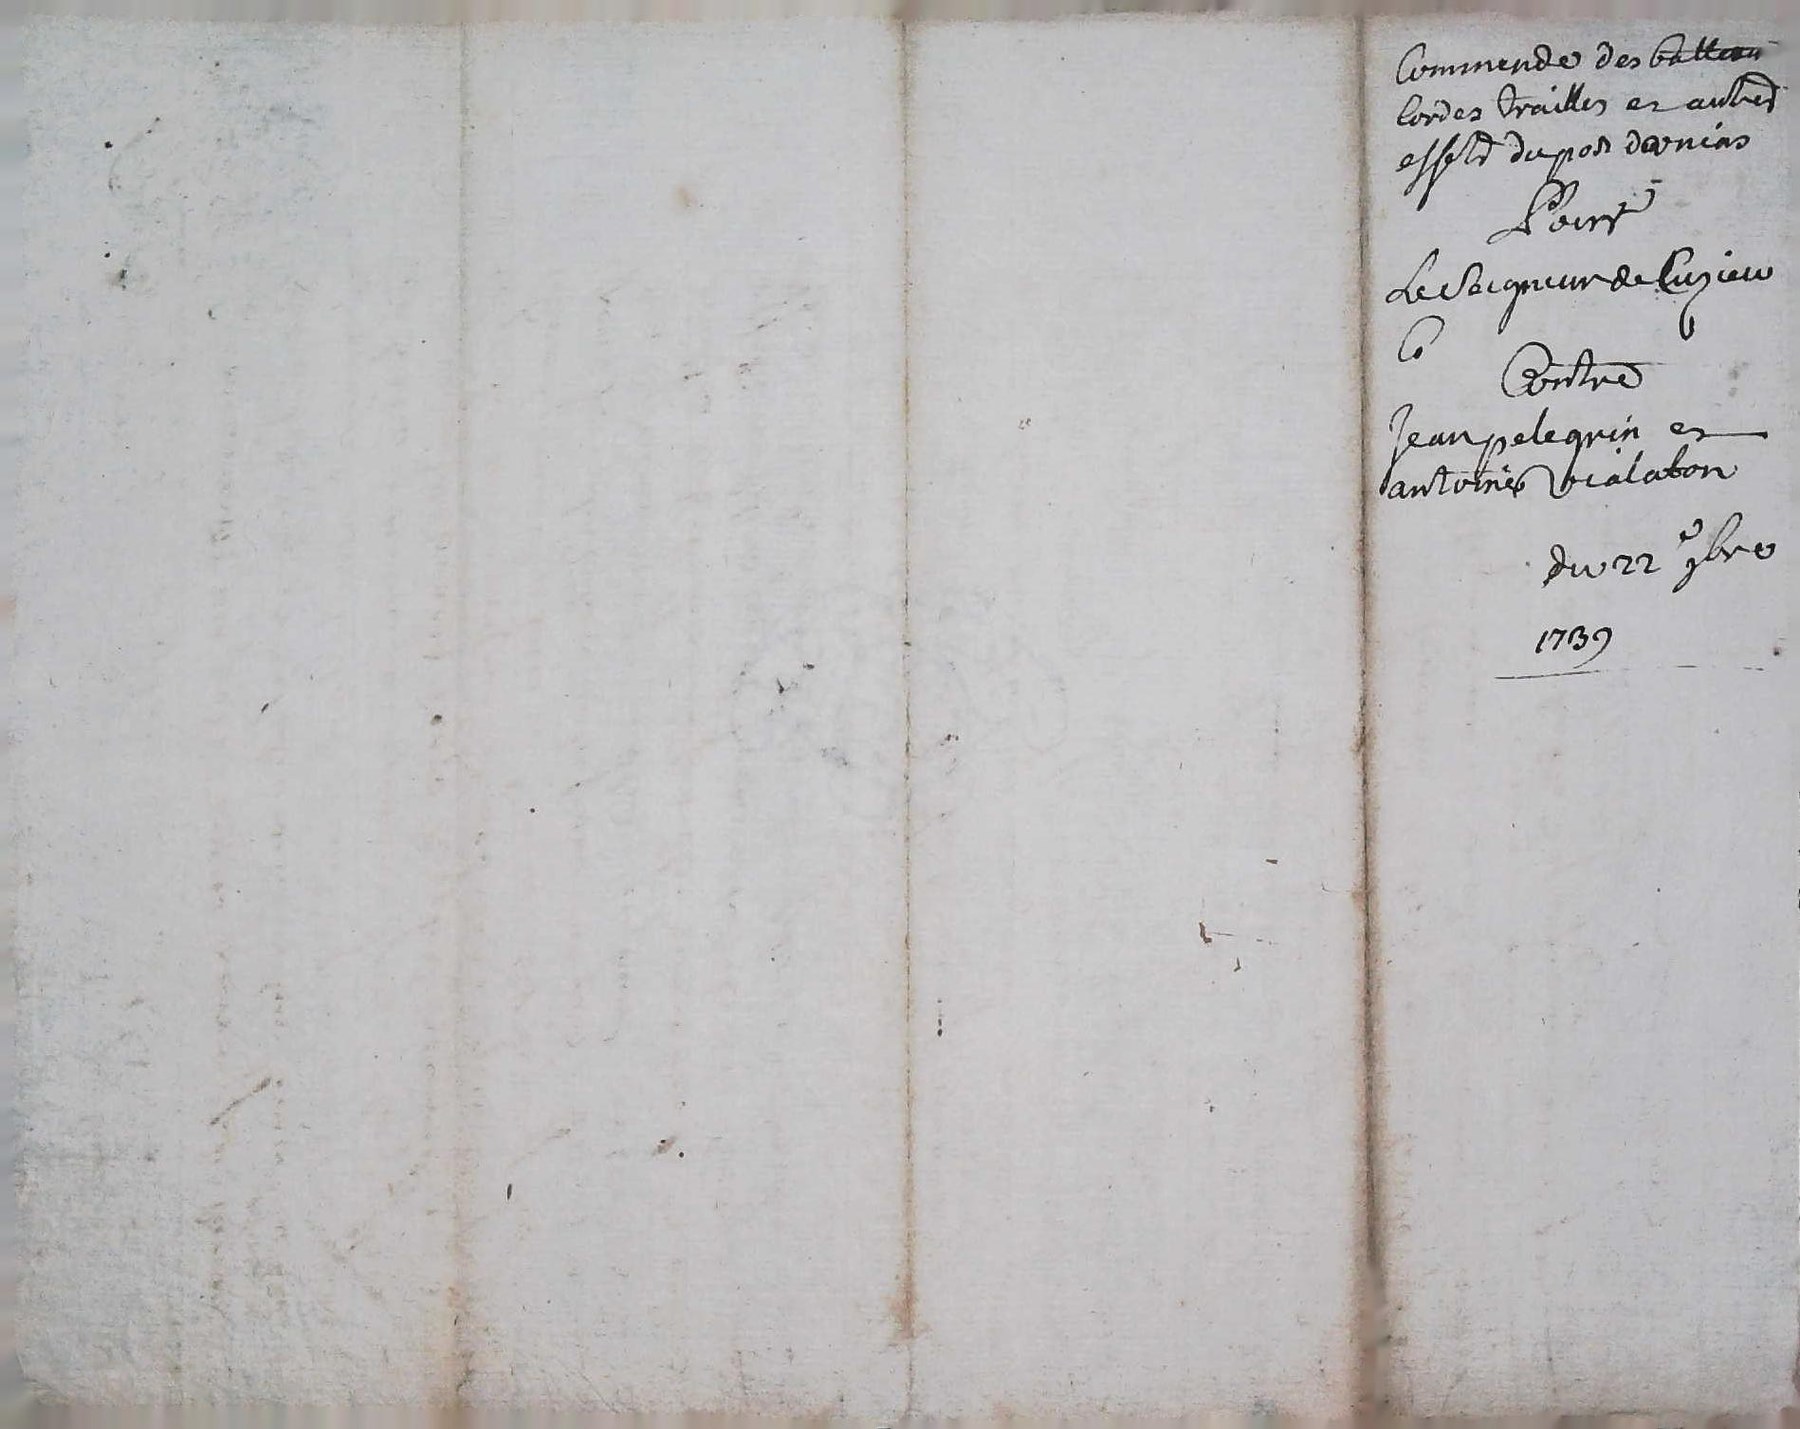 Commende des batteau
Cordes trailles et autres
effets du port dernias
Pour
Le Seigneur de Cuzieu
Co
Contre
Jean pelegrin et
antoine vialaton
du 22e 9bre
1739